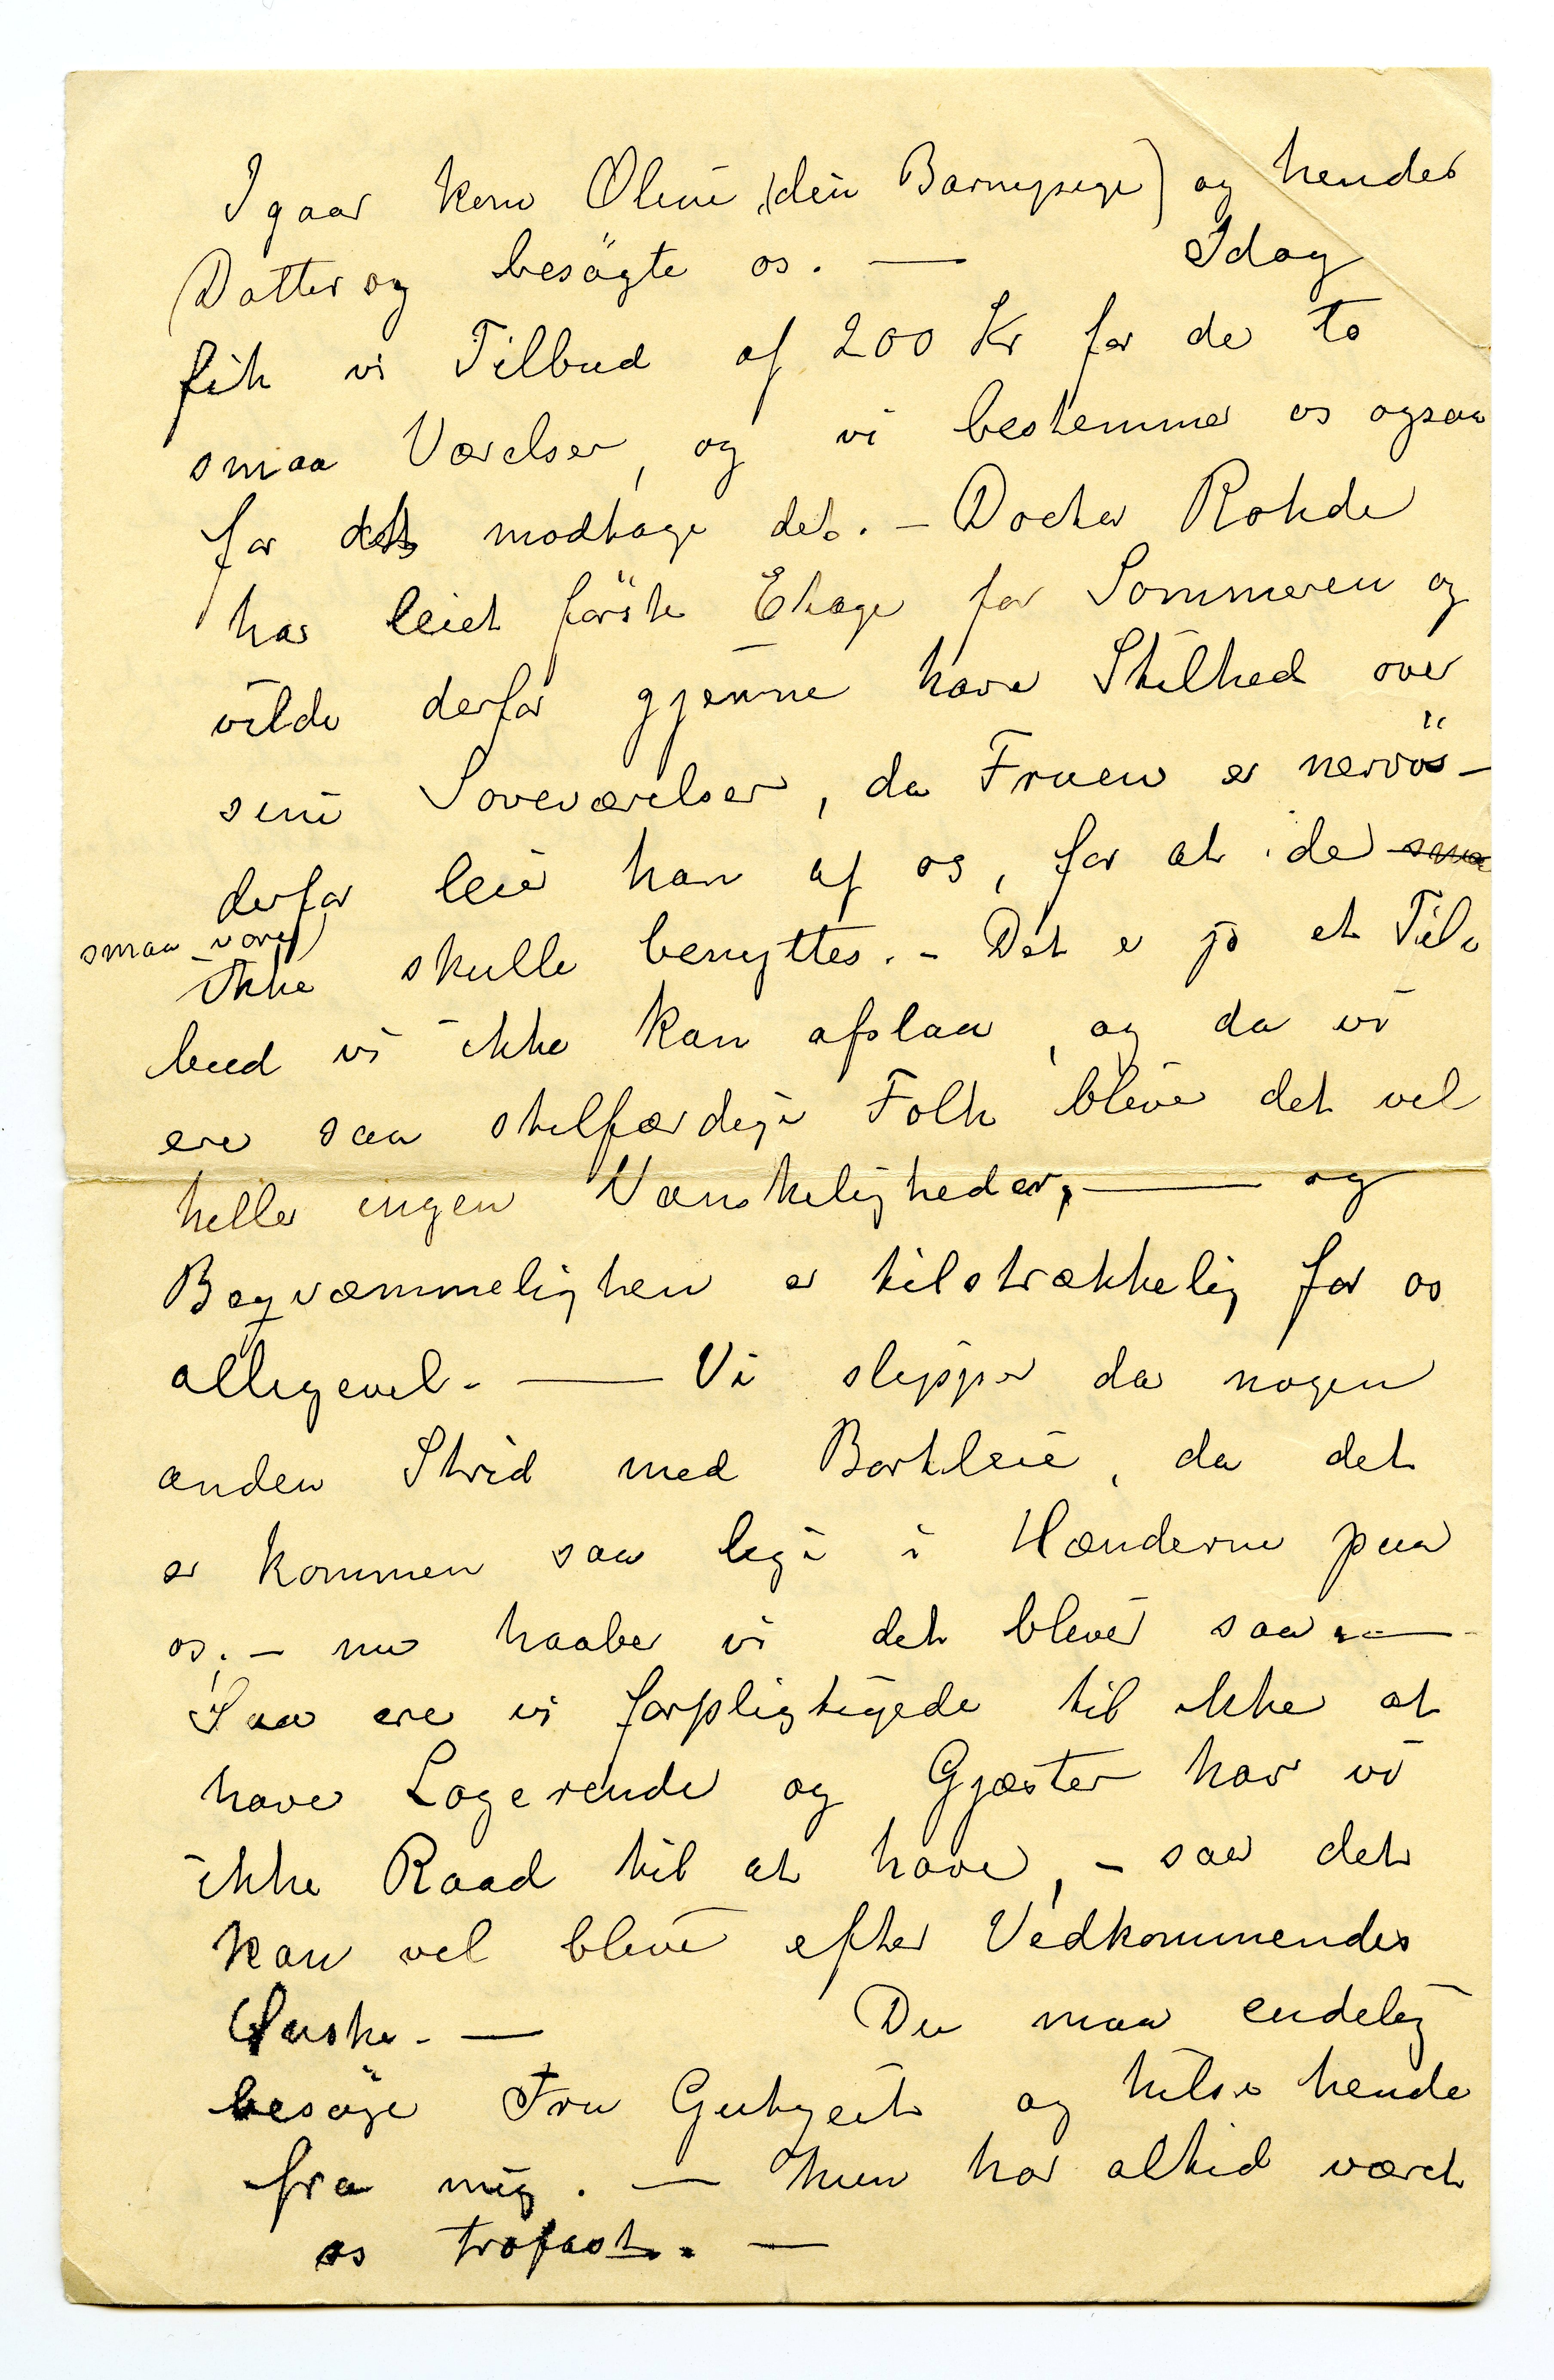 Igaar kom Oline (din Barnepige) og hendes
Datter og besögte os. — Idag
fik vi Tilbud af 200 Kr for de to
smaa Værelser, og vi bestemmer os ogsaa
for at modtage det. – Doctor Rohde
har leiet förste Etage for Sommeren og
vilde derfor gjærne have Stilhed over
sine Soveværelser, da Fruen er nervös –
derfor leier han af os, for at de sma
smaa vær)
ikke skulle benyttes. – Det er jo et Til-
bud vi ikke kan afslaa, og da vi
ere saa stilfærdige Folk bliver det vel
heller ingen Vanskeligheder, — og
Beqvæmmelighen er tilstrækkelig for os
alligevel. — Vi slipper da nogen
anden Strid med Bortleie, da det
er kommen saa lige i Hænderne paa
os; – nu haaber vi det bliver saa. —
Saa ere vi forpligtigede til ikke at
have Logerende og Gjæster har vi
ikke Raad til at have, – saa det
kan vel blive efter Vedkommendes
Önske. — Du maa endelig
besöge Fru Gutzeit og hilse hende
fra mig. — hun har altid været
os trofast. —